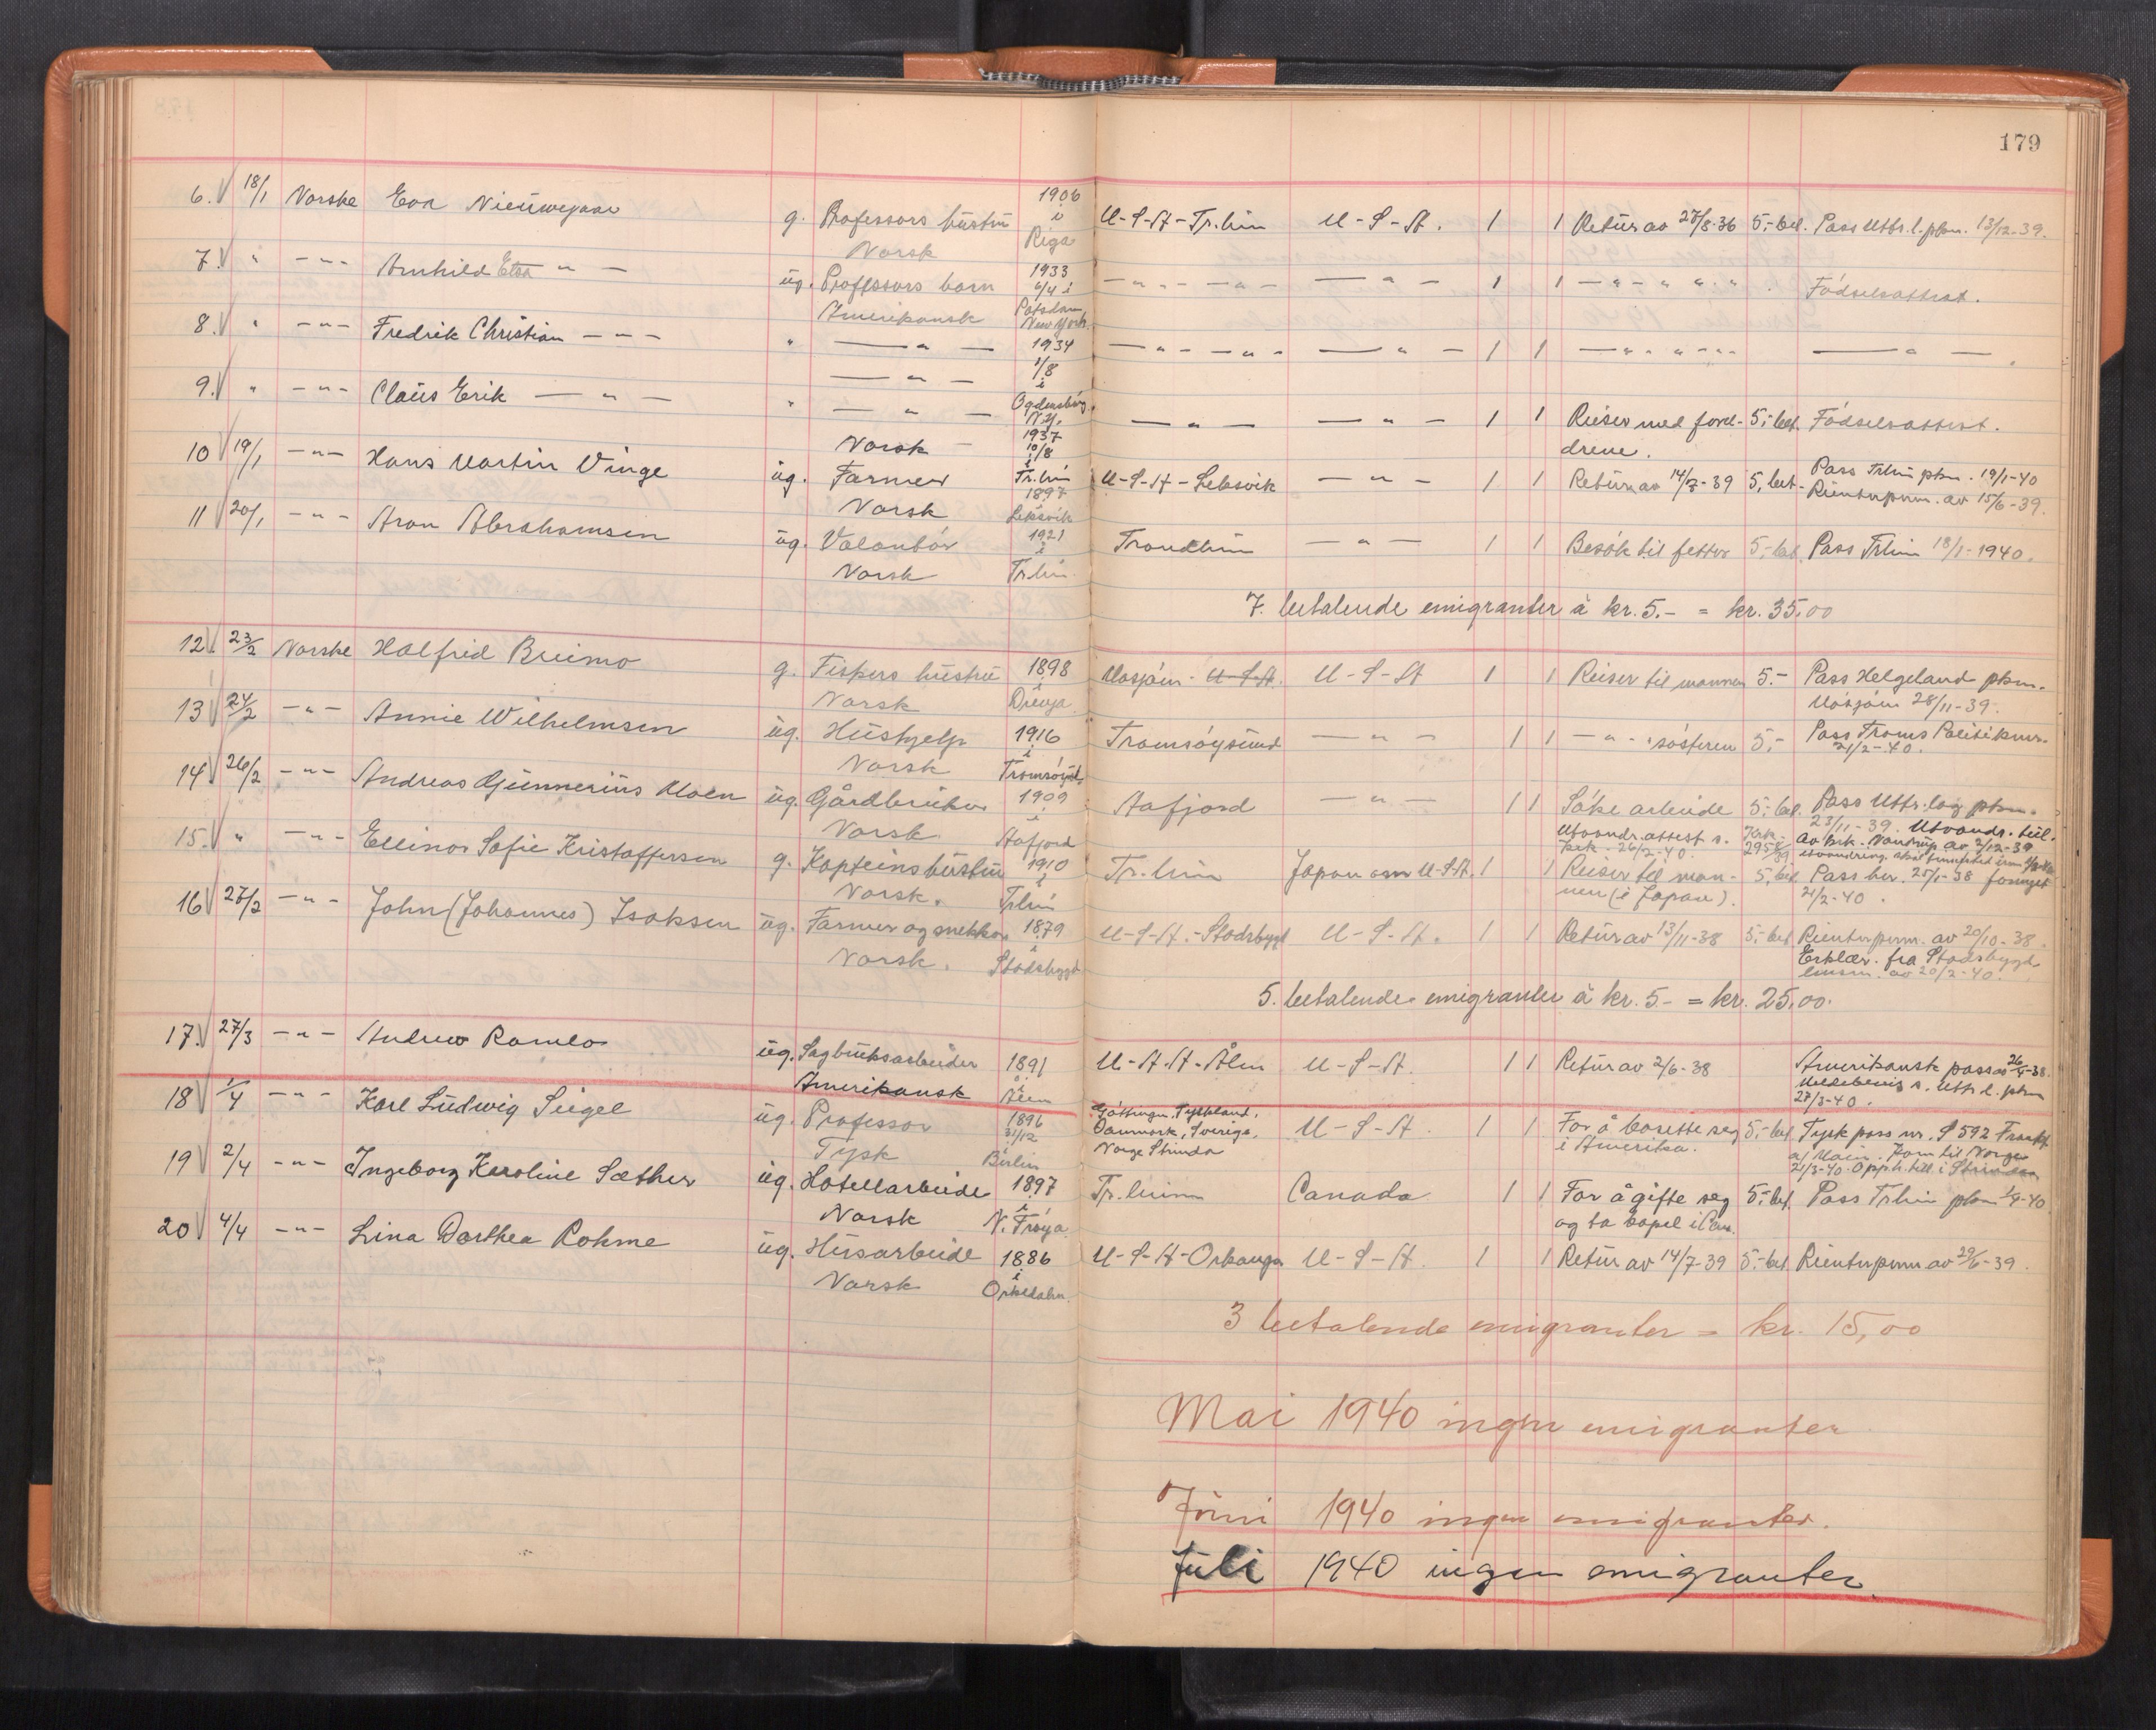 179
6. 18/1 Norske Eva Nieuwejaar g. Professors hustru 1906 i Riga U-S-A-Tr.heim U-S-A. 1 1 Retur av 28/8-36 5,- bet. Pass Uttr.l.pkm. 13/12-39.
Norsk
7. " -"- Arnhild Elsa -"- ug. Professors barn 1933 6/4 i Potsdam New York -"- -"- -"- 1 1 -"- " " " Fødselsattest.
Amerikansk
8. " -"- Fredrik Christian -"- " -"- 1934 1/8 i Ogdensburg N.Y. -"- -"- -"- 1 1 -"- " " -"-
-"-
9. " -"- Claus Erik -"- " -"- 1937 10/8 i Tr.heim -"- -"- 1 1 Reiser med forel- 5,- bet. Fødselsattest.
Norsk drene.
10 19/1 -"- Hans Martin Vinge ug. Farmer 1897 Leksvik U-S-A-Leksvik -"- 1 1 Retur av 14/7-39 5, bet. Pass Trheim pkm. 19/1-40
Norsk Rienterperm. av 15/6-39.
11 20/1 -"- Aron Abrahamsen ug. Valontør 1921 i Tr.heim Trondheim -"- 1 1 Besøk til fetter 5,- bet. Pass Trheim 18/1-1940.
Norsk
7. betalende emigranter à kr. 5.- = kr. 35,00
12. 23/2 Norske Halfrid Breimo g. Fiskers hustru 1898 i Drevja Mosjøen - U-S-A. U-S-A 1 1 Reiser til mannen 5.- Pass Helgeland pkm.
Norsk Mosjøen 28/11-39.
13 24/2 -"- Annie Wilhelmsen ug. Hushjelp 1916 i Tromsøysund Tromsøysund -"- 1 1 -"- søsteren 5,- Pass Troms Politikmr.
Norsk 21/2-40.
14. 26/2 -"- Andreas Gunnerius Moen ug. Gårdbruker 1909 i Aafjord Aafjord -"- 1 1 Søke arbeide 5,- bet. Pass Uttr.lag pkm.
Norsk Utvandr. attest 26/2-40. 23/11-39. Utvandr. till.
15. " -"- Ellinor Sofie Kristoffersen g. Kapteins hustru 1910 i Trheim Tr.heim Japan om U-S-A. 1 1 Reiser til man- 5, bet. Pass her. 25/1-38 fornyet
Norsk. nen (i Japan). 21/2-40.
16 27/2 -"- John (Johannes) Isaksen ug. Farmer og snekker 1879 i Stadsbygd U-S-A.-Stadsbygd U-S-A. 1 1 Retur av 13/11-38 5,- bet. Rienterperm. av 20/10-38.
Norsk. Erklær. fra Stadsbygd
lensm. av 20/2-40.
5. betalende emigranter à kr. 5.- = kr. 25,00.
17. 27/3 -"- Andrew Romlo ug. Sagbruksarbeider 1891 i Ålen U-S-A-Ålen U-S-A. 1 1 Retur av 2/6-38 Amerikansk pass av 26/5-38.
Amerikansk Meldebevis
27/3-40.
18 1/4 -"- Karl Ludwig Siegel ug. Professor 1896 31/12 Berlin Göttingen, Tyskland, Danmark, Sverige, Norge Strinda U-S-A. 1 1 For å bosette seg 5,- bet. Tysk pass nr. S 592 Frankf.
Tysk i Amerika. a/Main. Kom til Norge
21/3-40. Opph. till. i Strinda
19 2/4 -"- Ingeborg Karoline Sæther ug. Hotellarbeide 1897 i N. Frøya Tr.heim Canada 1 1 For å gifte seg 5,- bet. Pass Trheim pkm 1/4-40
Norsk og ta bopel i Can.
20 4/4 -"- Lina Dorthea Rohme ug. Husarbeide 1886 i Orkedalen U-S-A-Orkanger U-S-A. 1 1 Retur av 14/7-39 5,- bet. Rienterperm av 29/6-39.
Norsk
3 betalende emigranter = kr. 15,00
Mai 1940 ingen emigranter
Juni 1940 ingen emigranter.
Juli 1940 ingen emigranter.